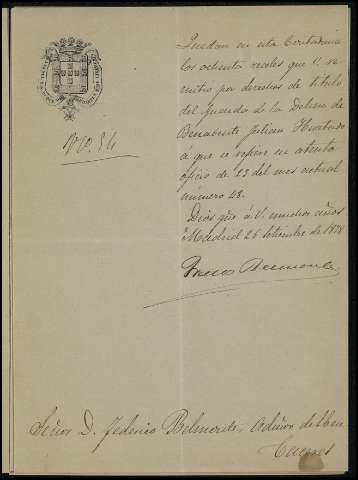 Quedan en esta Contaduria
los ochenta reales que V. re-
mitio por derechos de titulo
del Guarda de la Dehesa de
Benavente Julian Hurtado
á que se refiere su atento
oficio de 23 del mes actual
número 48.
Dios gue á V. muchos años
Madrid 26 Setiembre de 1878
Nº 54
Señor D. Federico Belmonte, Admor de
Caceres